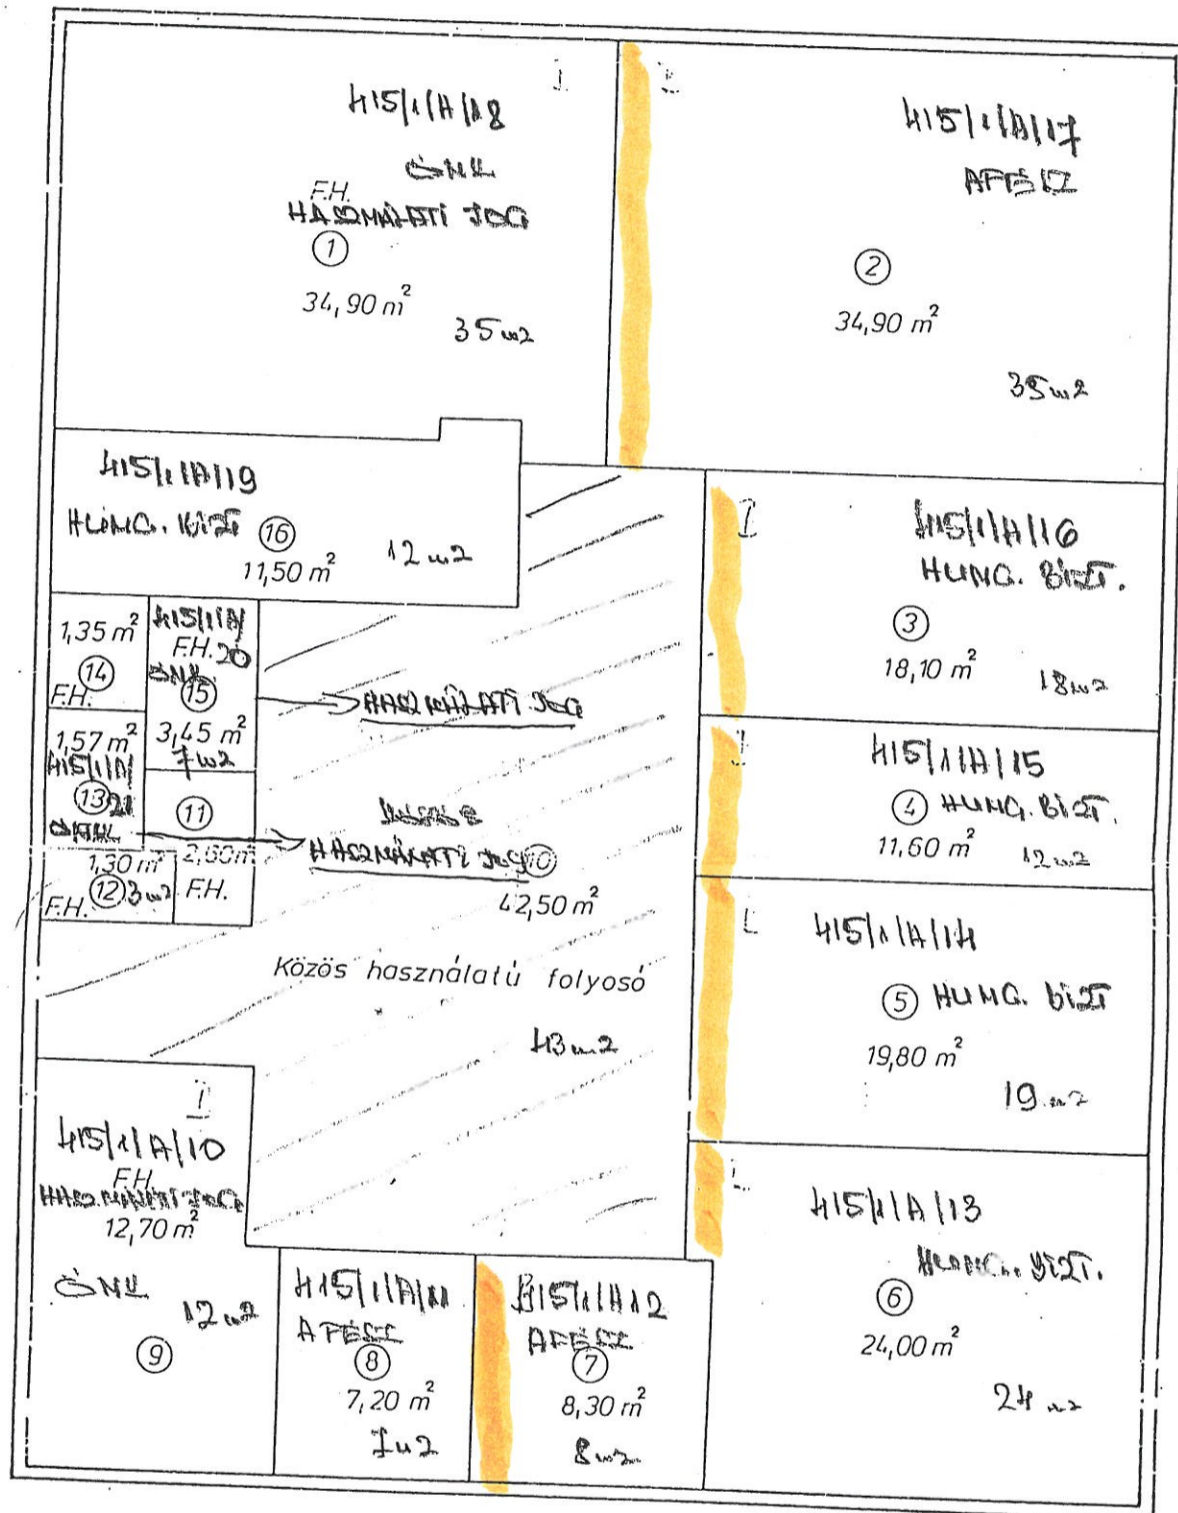 415/1/A/18
ÖNK
F.H.
HASZNÁLATI JOG
1
34,90 m²
35 m2
I
415/1/A/17
ÁFÉSZ
2
34,90 m²
35 m2
415/1/A/19
HUNG. BIZT
16
11,50 m²
12 m2
I
415/1/A/16
HUNG. BIZT.
3
18,10 m²
18 m2
1,35 m²
14
F.H.
415/1/A/
F.H. 20
ÖNK.
15
3,45 m²
7 m2
HASZNÁLATI JOG
1,57 m²
415/1/A/
13 21
ÖNK
11
2,60 m²
F.H.
1,30 m²
12 3 m2
F.H.
HASZNÁLATI JOG 10
42,50 m²
Közös használatú folyosó
43 m2
I
415/1/A/15
4 HUNG. BIZT.
11,60 m²
12 m2
415/1/A/14
5 HUNG. BIZT
19,80 m²
19 m2
I
415/1/A/10
F.H.
HASZNÁLATI JOG
12,70 m²
ÖNK
12 m2
9
415/1/A/11
ÁFÉSZ
8
7,20 m²
7 m2
415/1/A12
ÁFÉSZ
7
8,30 m²
8 m2
415/1/A/13
HUNG. BIZT.
6
24,00 m²
24 m2